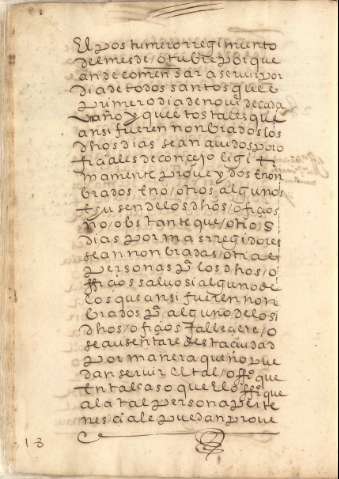 El postumero rregimiento
del mes de / otubre por que
an de comensar a seruir por
dia de todos santos que e
primero dia de nouie de cada
vaño y que los tales que
ansi fueren nonbrados los
dhos dias sean auidos por o
ficiales de concejo ligiti
mamente proue y dos e non
brados e no / otros algunos
e usen de los dhos / ofiçios
no / obstante que / otros
dias por mas rregidores
sean nonbradas / otras
personas pa los dhos / o
ffiçios saluo si alguno de
los que ansi fueren non
brados pa alguno de los
dhos / ofiçios falleçiere / o
se ausentare desta ciudad
por manera que no pue
dan seruir el tal / offo que
en tal caso que el offo que
a la tal persona perte
nesciale puedan proue
13